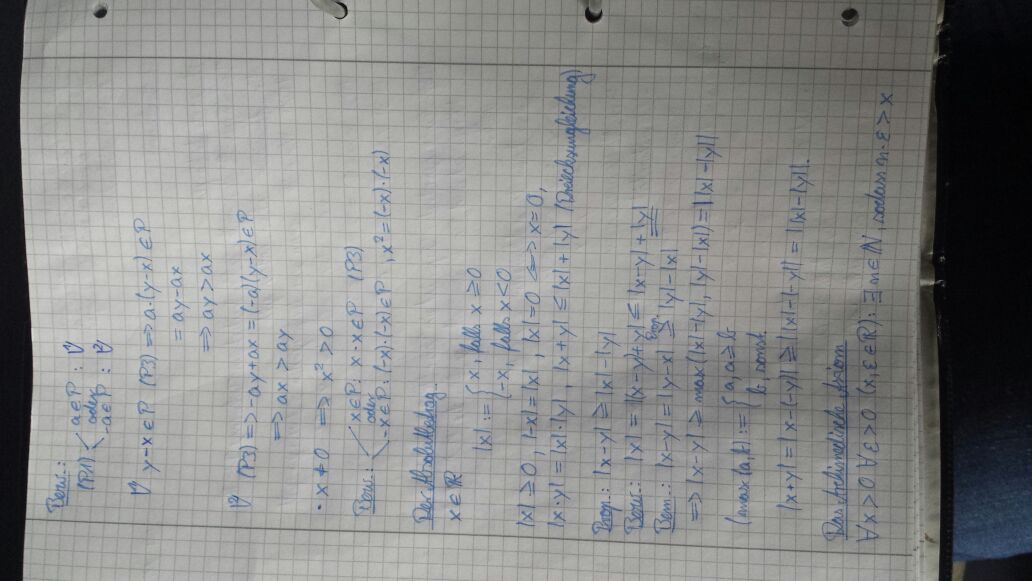 Bew.:
(P1) < a∈P : ∀
oder
-a∈P : ∀
∀ y-x∈P (P3) => a·(y-x)∈P
= ay-ax
=> ay>ax
∀ (P3) => -ay+ax = (-a)(y-x)∈P
=> ax > ay
· x≠0 => x²>0
Bew.: < x∈P: x·x∈P (P3)
oder
-x∈P: (-x)·(-x)∈P, x²=(-x)·(-x)
Der Absolutbetrag
x∈ℝ
|x| := { x, falls x≥0
-x, falls x<0
|x|≥0, |-x|=|x|, |x|=0 <=> x=0,
|x·y|=|x|·|y|, |x+y|≤|x|+|y| (Dreiecksungleichung)
Prop.: |x-y| ≥ |x|-|y|
Bew.: |x| = |(x-y)+y| ≤ |x-y|+|y|
Bem.: |x-y| = |y-x| ≥ |y|-|x|
Prop.
=> |x-y| ≥ max(|x|-|y|, |y|-|x|) = ||x|-|y||
(max(a,b) := { a, a≥b
b, sonst.
|x+y| = |x-(-y)| ≥ ||x|-|-y|| = ||x|-|y||.
Das Archimedische Axiom
∀x>0 ∧ ε<0 (x,ε∈ℝ): ∃ n∈ℕ, sodass n·ε > x